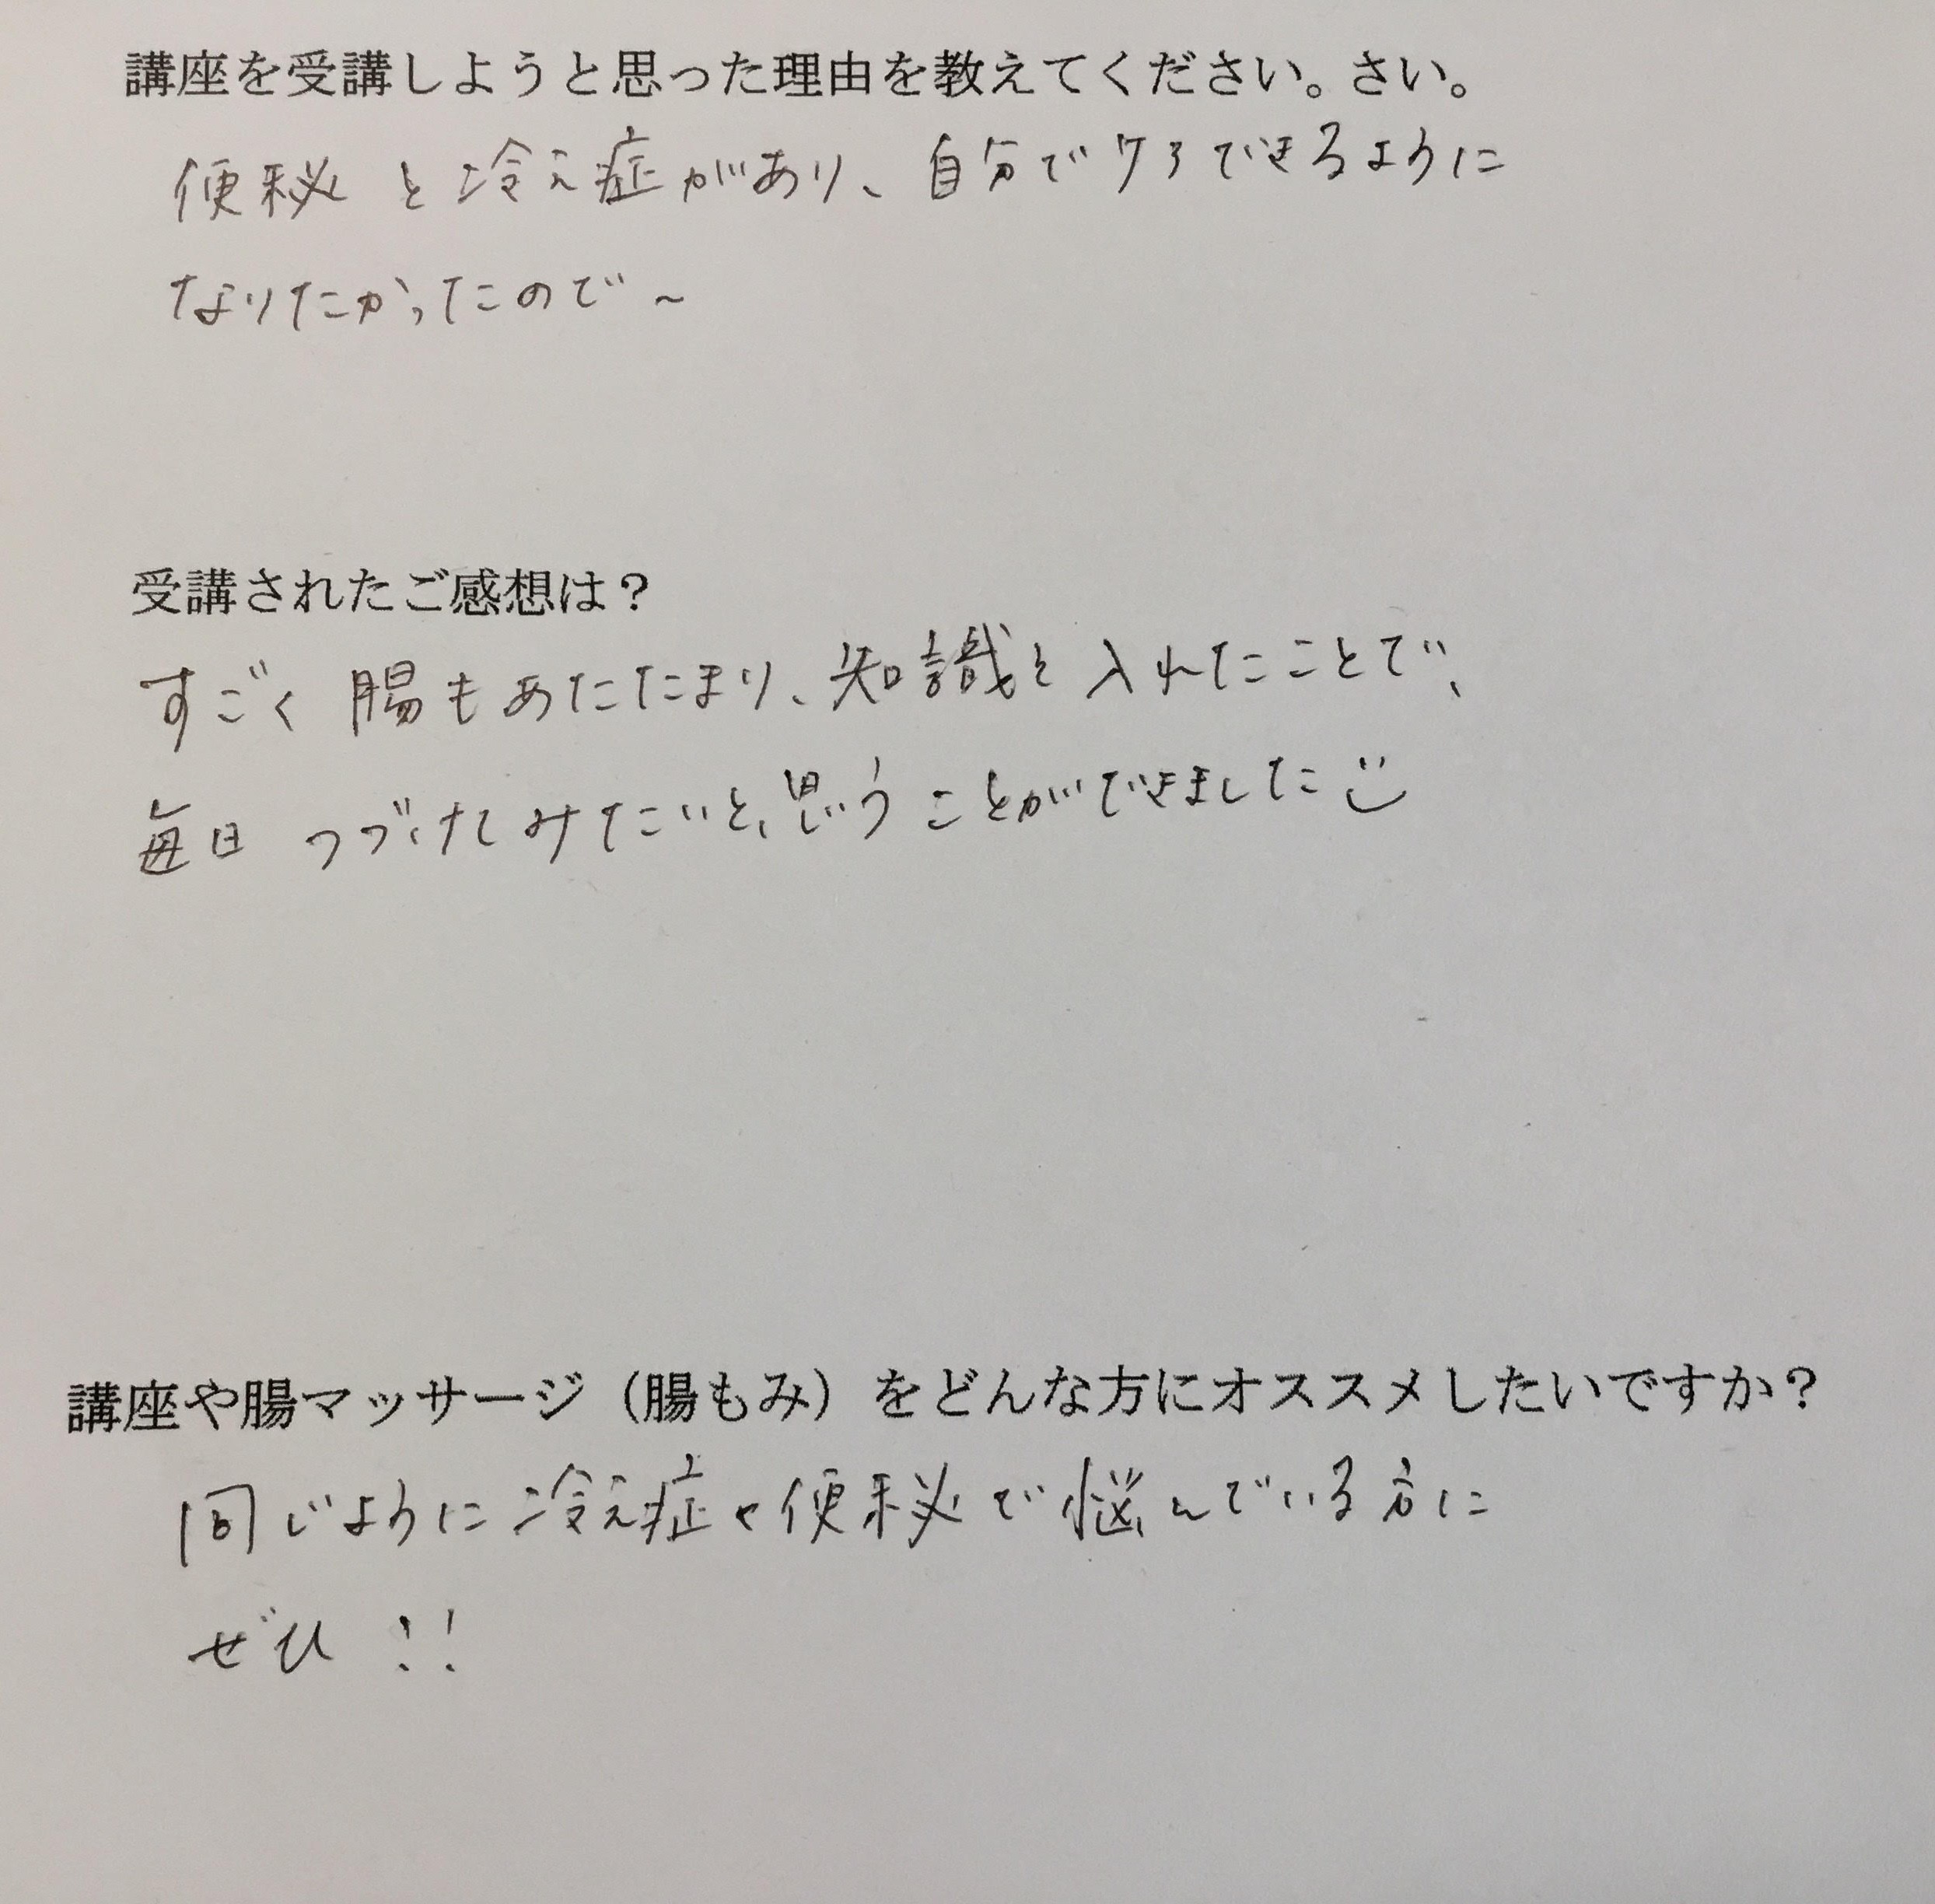 講座を受講しようと思った理由を教えてください。さい。
便秘と冷え症があり、自分でケアできるように
なりたかったので〜
受講されたご感想は？
すごく腸もあたたまり、知識を入れたことで、
毎日つづけてみたいと、思うことができました
講座や腸マッサージ（腸もみ）をどんな方にオススメしたいですか？
同じように冷え症や便秘で悩んでいる方に
ぜひ!!